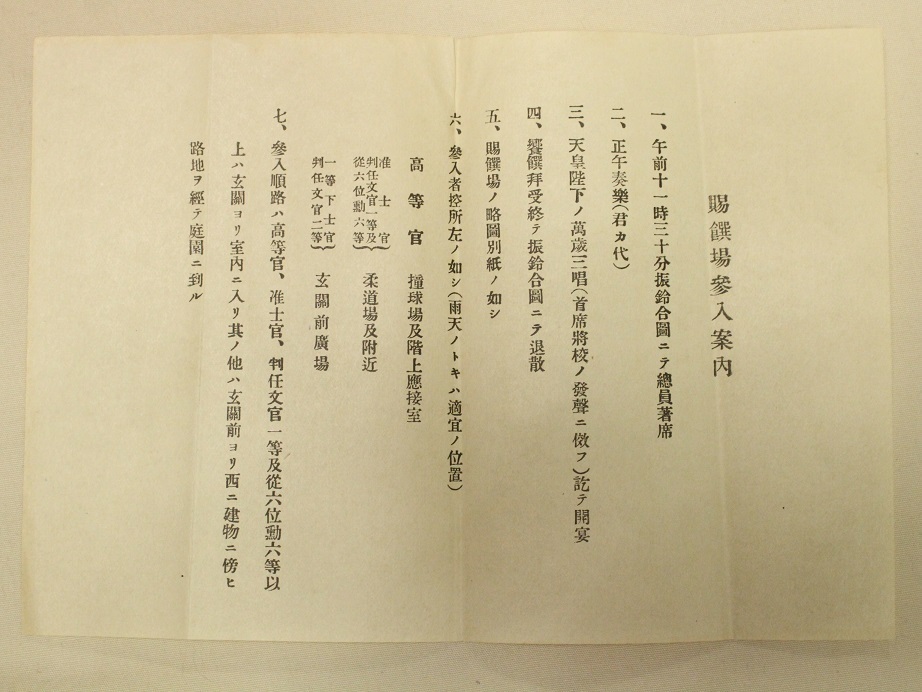 賜饌場參入案內
一、午前十一時三十分振鈴合圖ニテ總員著席
二、正午奏樂(君カ代)
三、天皇陛下ノ萬歲三唱(首席將校ノ發聲ニ傚フ)訖テ開宴
四、饗饌拜受終テ振鈴合圖ニテ退散
五、賜饌場ノ略圖別紙ノ如シ
六、參入者控所左ノ如シ(雨天ノトキハ適宜ノ位置)
高等官 撞球場及階上應接室
准士官
判任文官一等及
從六位勳六等 柔道場及附近
一等下士官
判任文官二等 玄關前廣場
七、參入順路ハ高等官、准士官、判任文官一等及從六位勳六等以
上ハ玄關ヨリ室內ニ入リ其ノ他ハ玄關前ヨリ西ニ建物ニ傍ヒ
路地ヲ經テ庭園ニ到ル